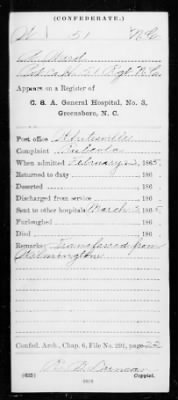 (CONFEDERATE.)
W 51 N.C.
Ward
Co. 51 Regt. N.C.
Appears on a Register of
C. S. A. General Hospital, No. 3,
Greensboro, N. C.
Post office Whiteville
Complaint
When admitted February 2, 1865.
Returned to duty , 186 .
Deserted , 186 .
Discharged from service , 186 .
Sent to other hospitals March 3, 1865.
Furloughed , 186 .
Died , 186 .
Remarks: Transferred from
Wilmington
Confed. Arch., Chap. 6, File No. 291, page 22
(635) Copyist.